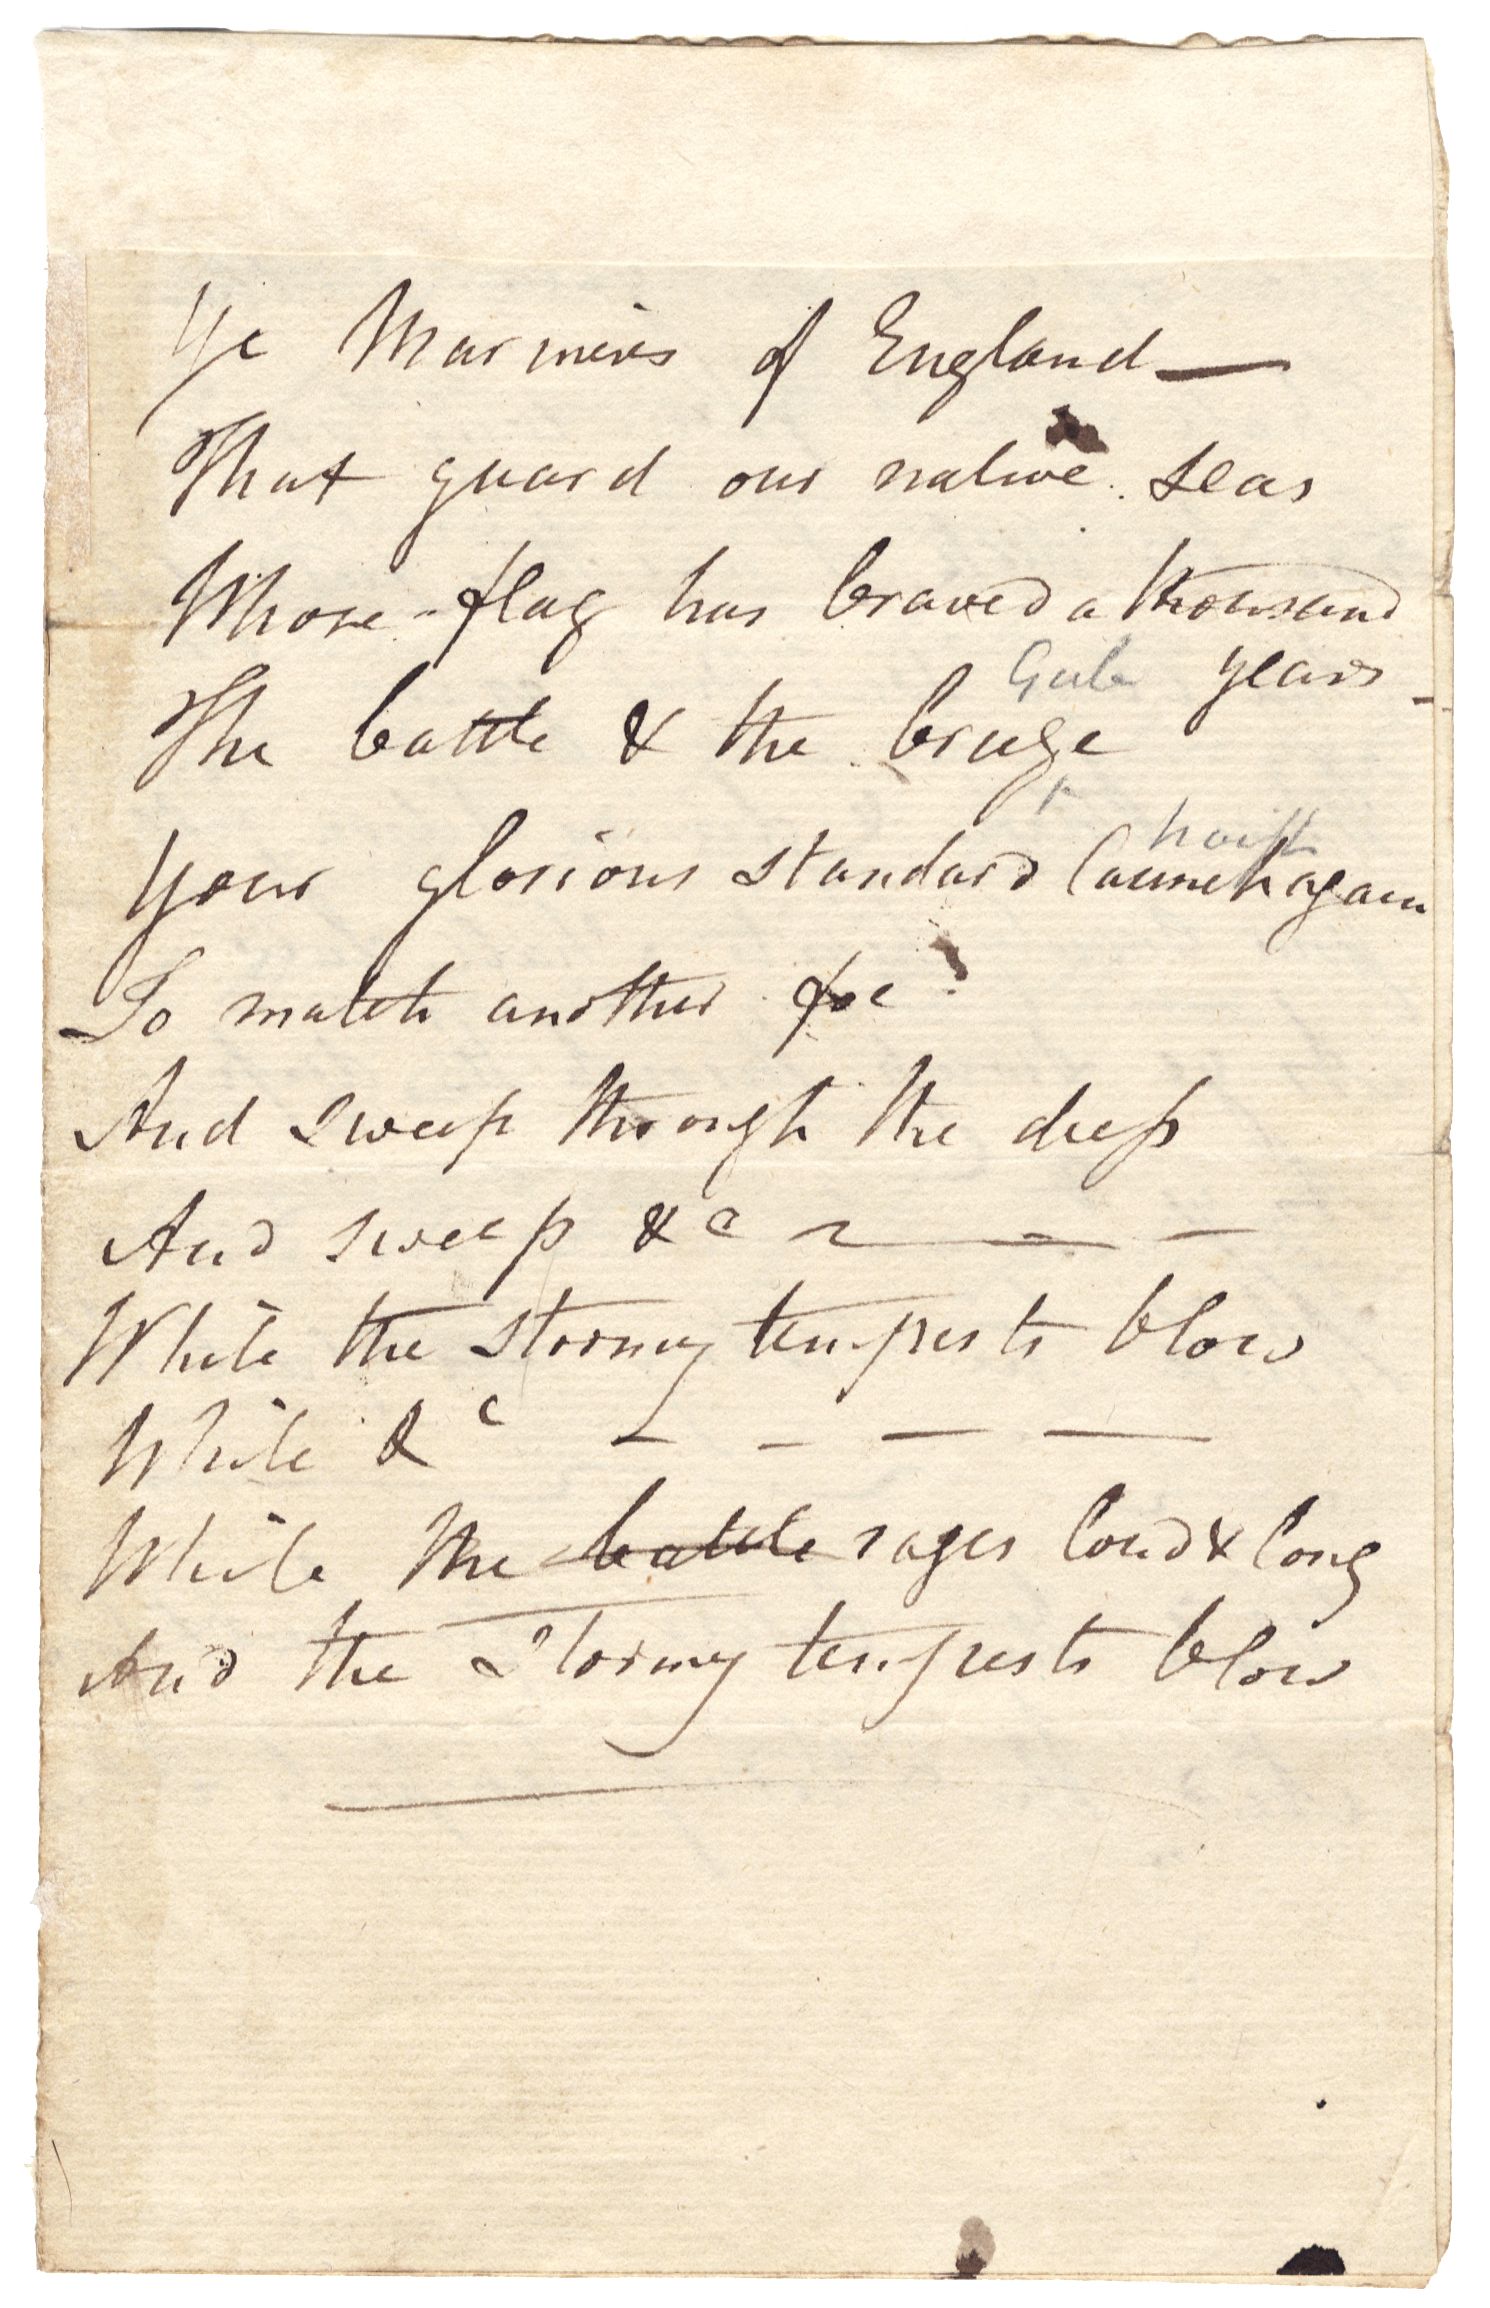 Ye Mariners of England —
That guard our native seas
Whose flag has braved a thousand
Gale years -
The battle & the brieze
hoist
Your glorious standard launch again
To match another foe
And sweep through the deep
And sweep &c ~ — - —
While the stormy tempests blow
While &c - - — —
While the battle rages loud & long
And the Stormy tempests blow